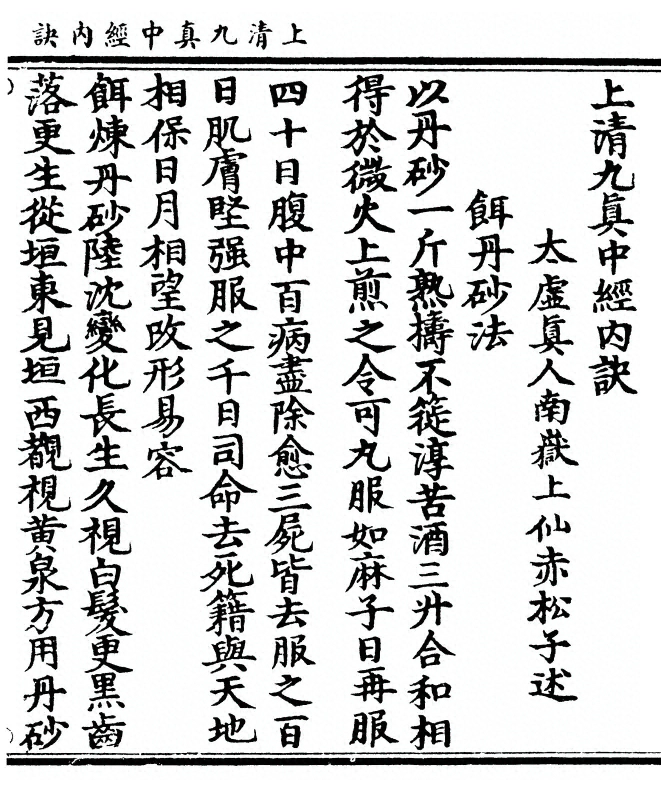 上清九真中經內訣
上清九眞中經内訣
太虛眞人南嶽上仙赤松子述
餌丹砂法
以丹砂一斤熟擣不簁淳苦酒三升合和相
得於微火上煎之令可丸服如麻子日再服
四十日腹中百病盡除愈三屍皆去服之百
日肌膚堅强服之千日司命去死籍與天地
相保日月相望改形易容
餌煉丹砂陸沈變化長生久視白髮更黑齒
落更生從垣東見垣西覩視黃泉方用丹砂